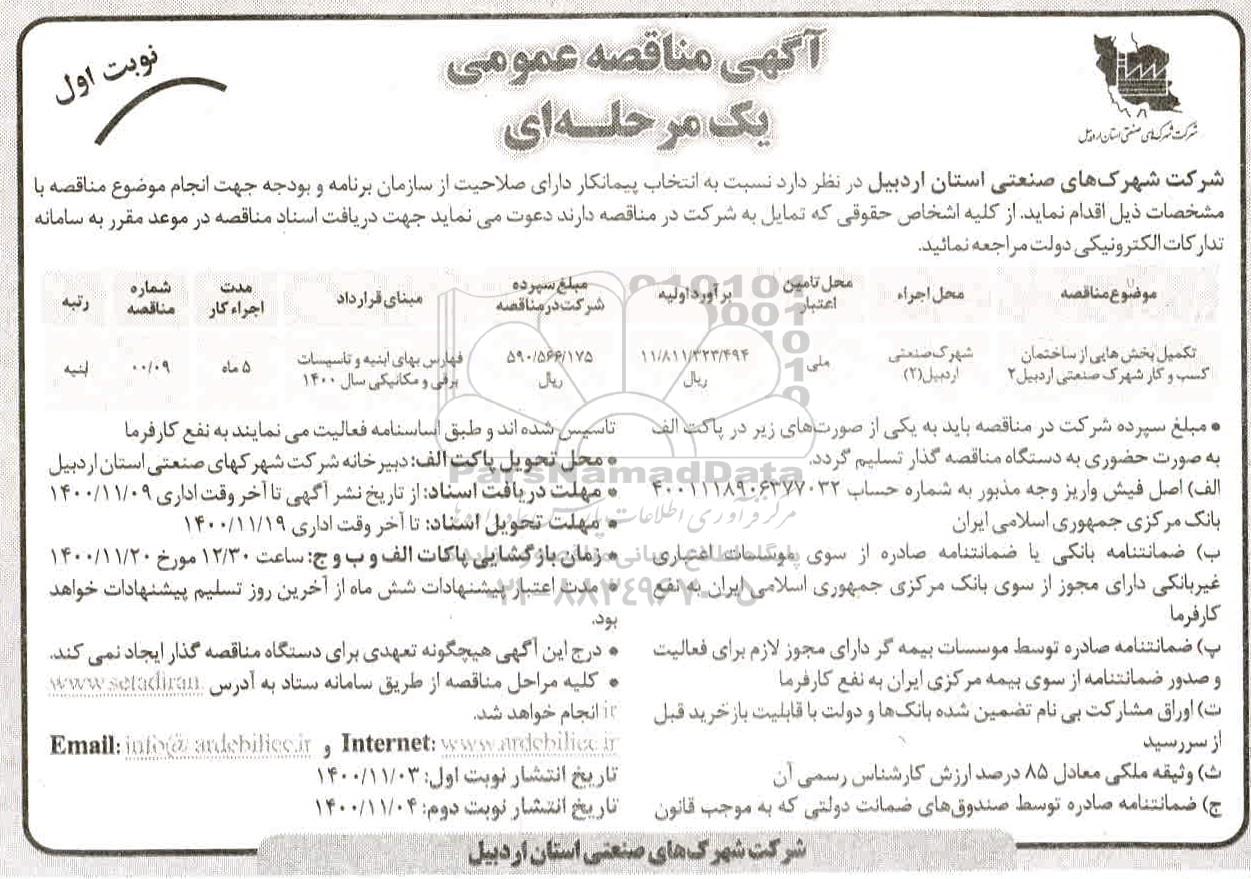 شرکت شهرک‌های صنعتی استان اردبیل
آگهی مناقصه عمومی
یک مرحله‌ای
نوبت اول
شرکت شهرک‌های صنعتی استان اردبیل در نظر دارد نسبت به انتخاب پیمانکار دارای صلاحیت از سازمان برنامه و بودجه جهت انجام موضوع مناقصه با
مشخصات ذیل اقدام نماید. از کلیه اشخاص حقوقی که تمایل به شرکت در مناقصه دارند دعوت می نماید جهت دریافت اسناد مناقصه در موعد مقرر به سامانه
تدارکات الکترونیکی دولت مراجعه نمائید.
موضوع مناقصه | محل اجراء | محل تامین اعتبار | برآورد اولیه | مبلغ سپرده شرکت در مناقصه | مبنای قرارداد | مدت اجراء کار | شماره مناقصه | رتبه
تکمیل بخش هایی از ساختمان کسب و کار شهرک صنعتی اردبیل ۲ | شهرک صنعتی اردبیل (۲) | ملی | ۱۱/۸۱۱/۳۲۳/۴۹۴ ریال | ۵۹۰/۵۶۶/۱۷۵ ریال | فهارس بهای ابنیه و تاسیسات برقی و مکانیکی سال ۱۴۰۰ | ۵ ماه | ۰۰/۰۹ | ابنیه
• مبلغ سپرده شرکت در مناقصه باید به یکی از صورت‌های زیر در پاکت الف
به صورت حضوری به دستگاه مناقصه گذار تسلیم گردد.
الف) اصل فیش واریز وجه مذبور به شماره حساب ۴۰۰۱۱۱۸۹۰۶۳۷۷۰۳۲
بانک مرکزی جمهوری اسلامی ایران
ب) ضمانتنامه بانکی یا ضمانتنامه صادره از سوی موسسات اعتباری
غیربانکی دارای مجوز از سوی بانک مرکزی جمهوری اسلامی ایران به نفع
کارفرما
پ) ضمانتنامه صادره توسط موسسات بیمه گر دارای مجوز لازم برای فعالیت
و صدور ضمانتنامه از سوی بیمه مرکزی ایران به نفع کارفرما
ت) اوراق مشارکت بی نام تضمین شده بانک‌ها و دولت با قابلیت بازخرید قبل
از سررسید
ث) وثیقه ملکی معادل ۸۵ درصد ارزش کارشناس رسمی آن
ج) ضمانتنامه صادره توسط صندوق‌های ضمانت دولتی که به موجب قانون
تاسیس شده اند و طبق اساسنامه فعالیت می نمایند به نفع کارفرما
• محل تحویل پاکت الف: دبیرخانه شرکت شهرکهای صنعتی استان اردبیل
• مهلت دریافت اسناد: از تاریخ نشر آگهی تا آخر وقت اداری ۱۴۰۰/۱۱/۰۹
• مهلت تحویل اسناد: تا آخر وقت اداری ۱۴۰۰/۱۱/۱۹
• زمان بازگشایی پاکات الف و ب و ج: ساعت ۱۲/۳۰ مورخ ۱۴۰۰/۱۱/۲۰
• مدت اعتبار پیشنهادات شش ماه از آخرین روز تسلیم پیشنهادات خواهد
بود.
• درج این آگهی هیچگونه تعهدی برای دستگاه مناقصه گذار ایجاد نمی کند.
• کلیه مراحل مناقصه از طریق سامانه ستاد به آدرس www.setadiran
.ir انجام خواهد شد.
Internet: www.ardebiliec.ir و Email: info@ardebiliec.ir
تاریخ انتشار نوبت اول: ۱۴۰۰/۱۱/۰۳
تاریخ انتشار نوبت دوم: ۱۴۰۰/۱۱/۰۴
شرکت شهرک‌های صنعتی استان اردبیل
ParsNamadData